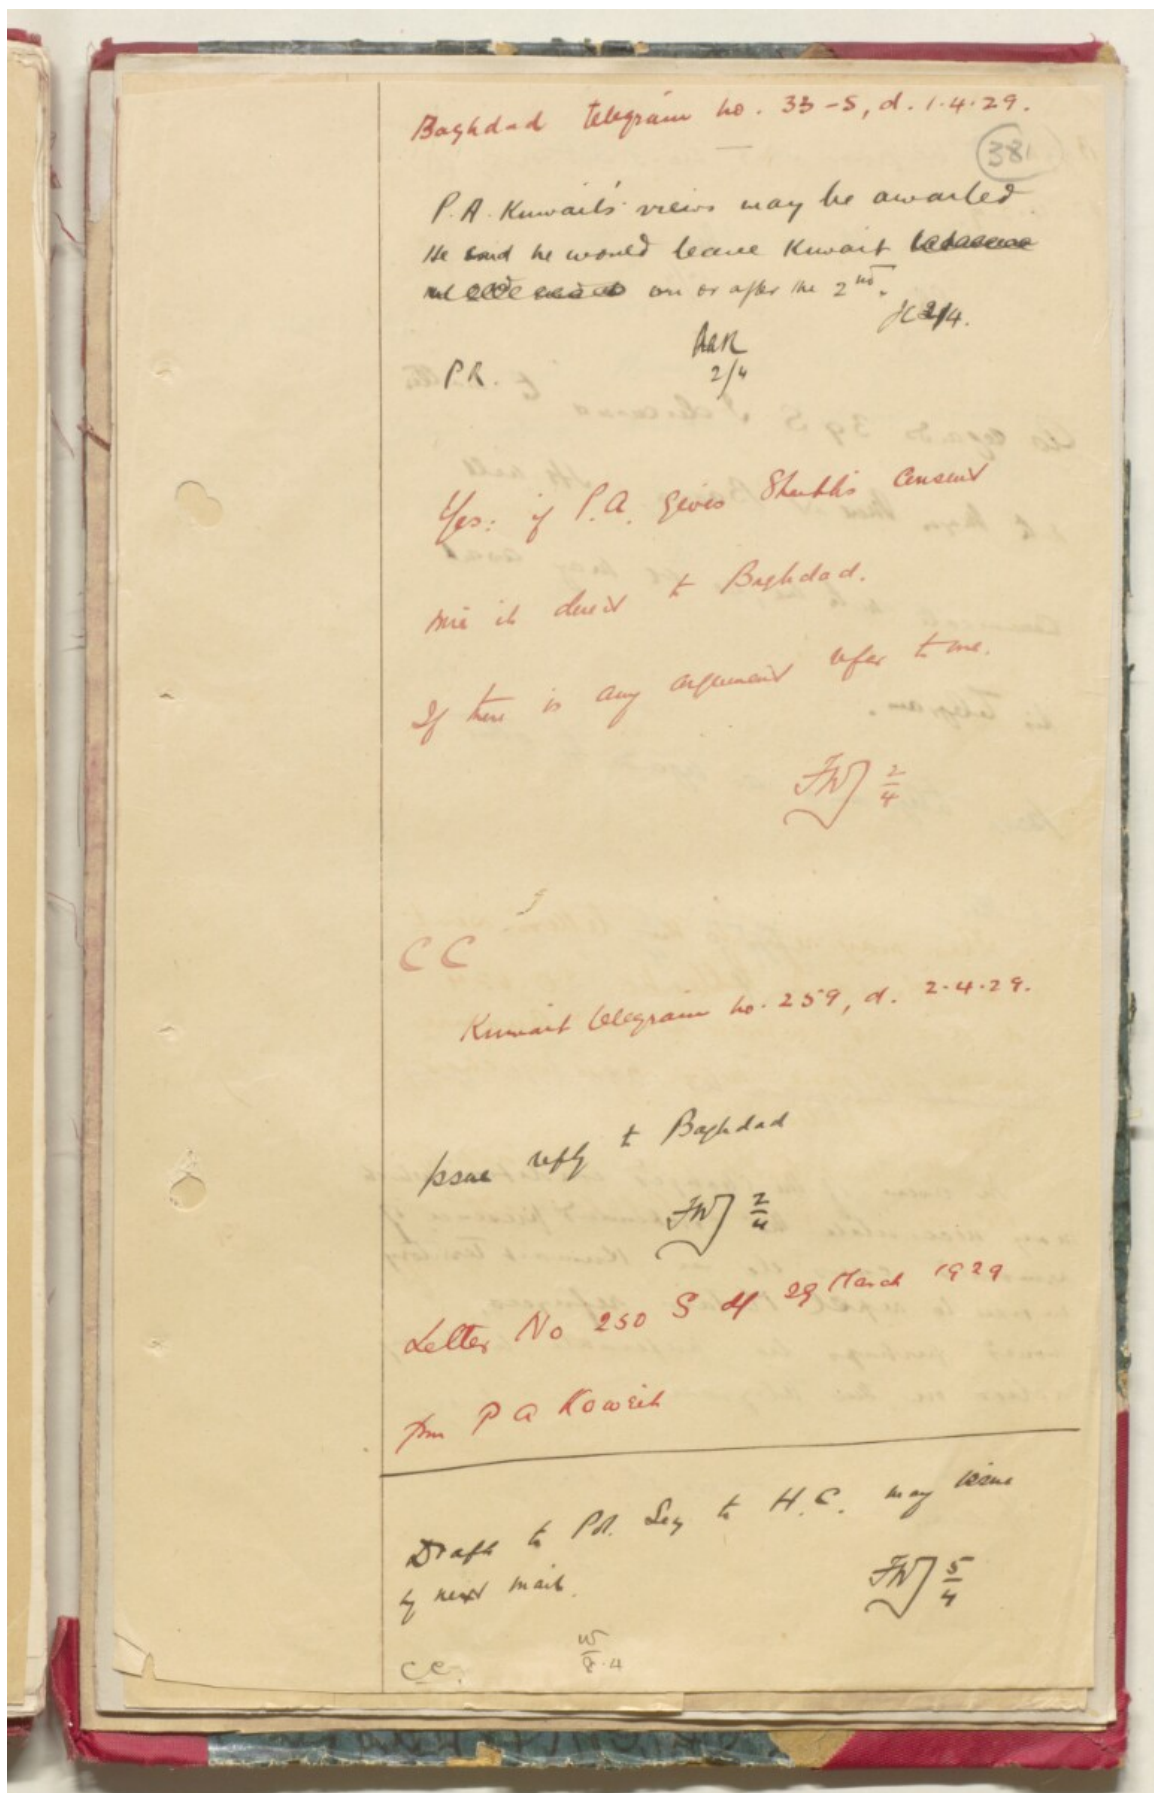 Baghdad telegram no. 33-S, d. 1.4.29.
38
P.A. Kuwait's views may be awaited
He said he would leave Kuwait
on or after the 2nd.
2/4.
P.R.
2/4
Yes: if P.A. gives Sheikh's consent
wire it direct to Baghdad.
If there is any argument refer to me.
FWJ 2/4
CC
Kuwait telegram no. 259, d. 2.4.29.
Issue reply to Baghdad
FWJ 2/4
Letter No 250 S df 29 March 1929
from P A Koweit
Draft to Pol. Secy to H.C. may issue
by next mail.
FWJ 5/4
CC.
8.4